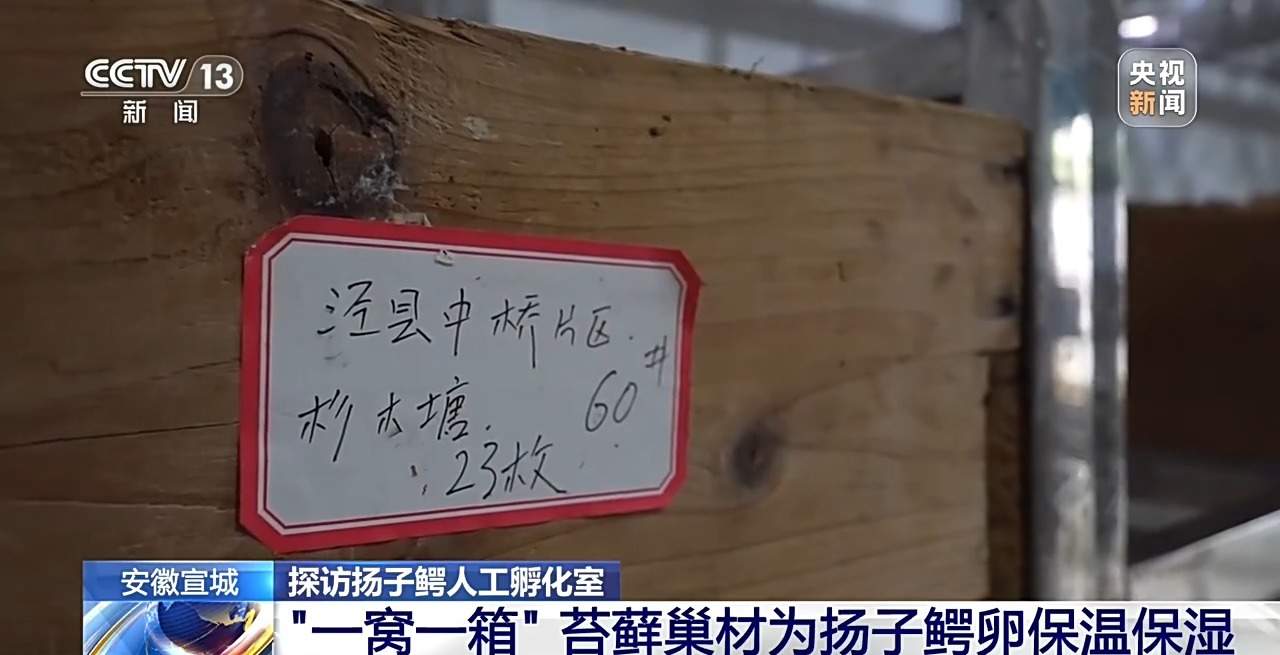 CCTV 13
新闻
央视
新闻
泾县中桥片区.
杉木塘. 60#
23枚
安徽宣城
探访扬子鳄人工孵化室
"一窝一箱" 苔藓巢材为扬子鳄卵保温保湿